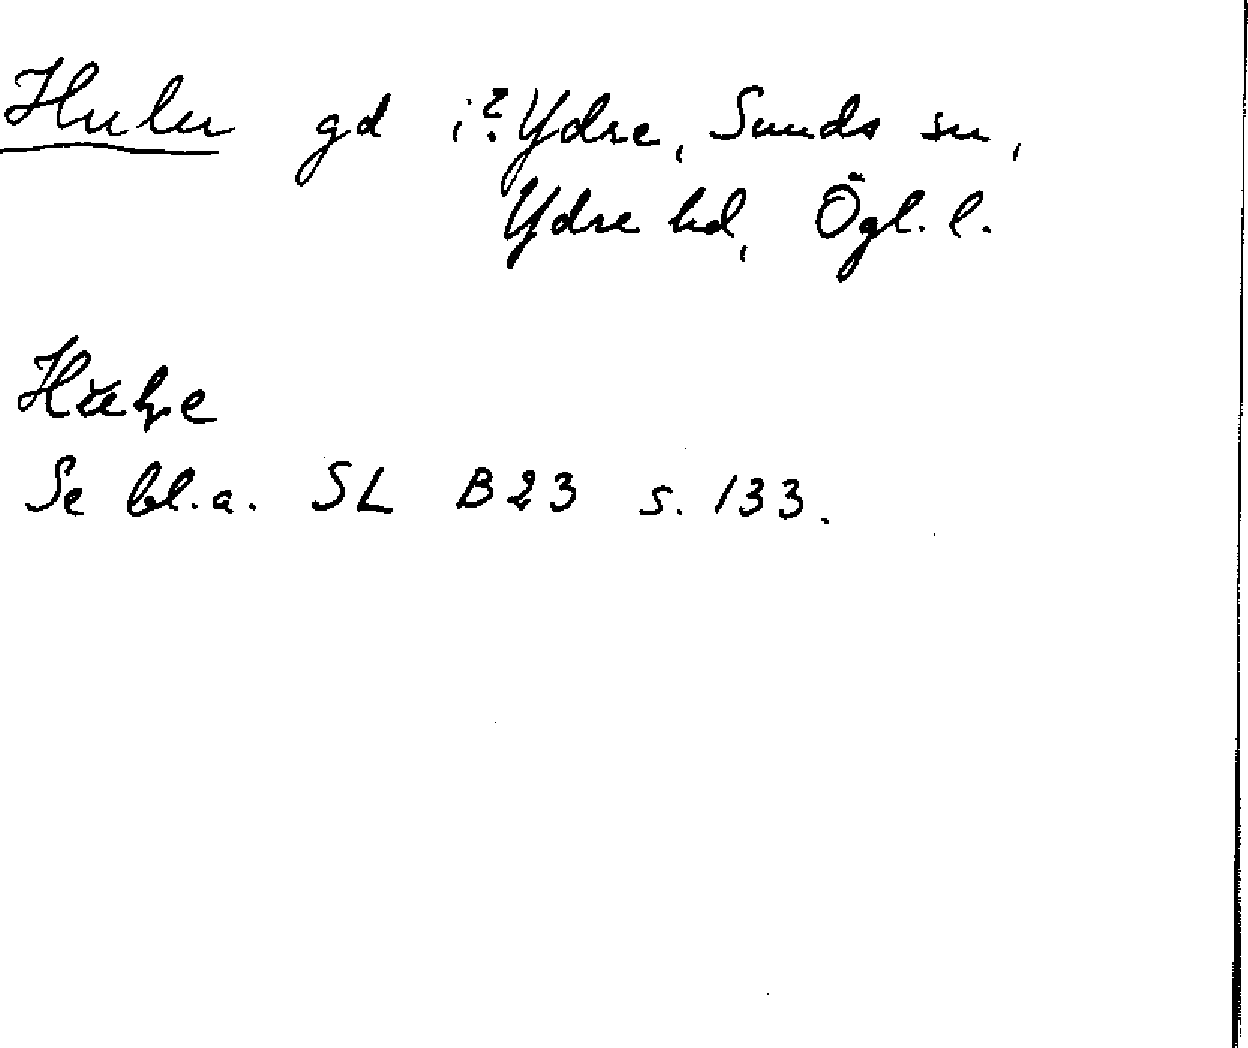 Hulu gd i? Ydre, Sunds sn,
Ydre hd, Ögl. l.
Se bl.a. SL B23 s. 133.